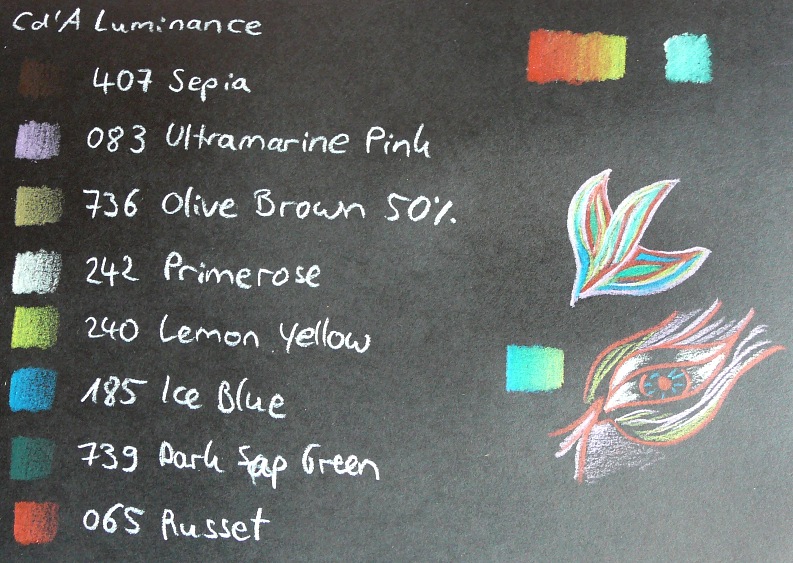 Cd'A Luminance
407 Sepia
083 Ultramarine Pink
736 Olive Brown 50%
242 Primerose
240 Lemon Yellow
185 Ice Blue
739 Dark Sap Green
065 Russet